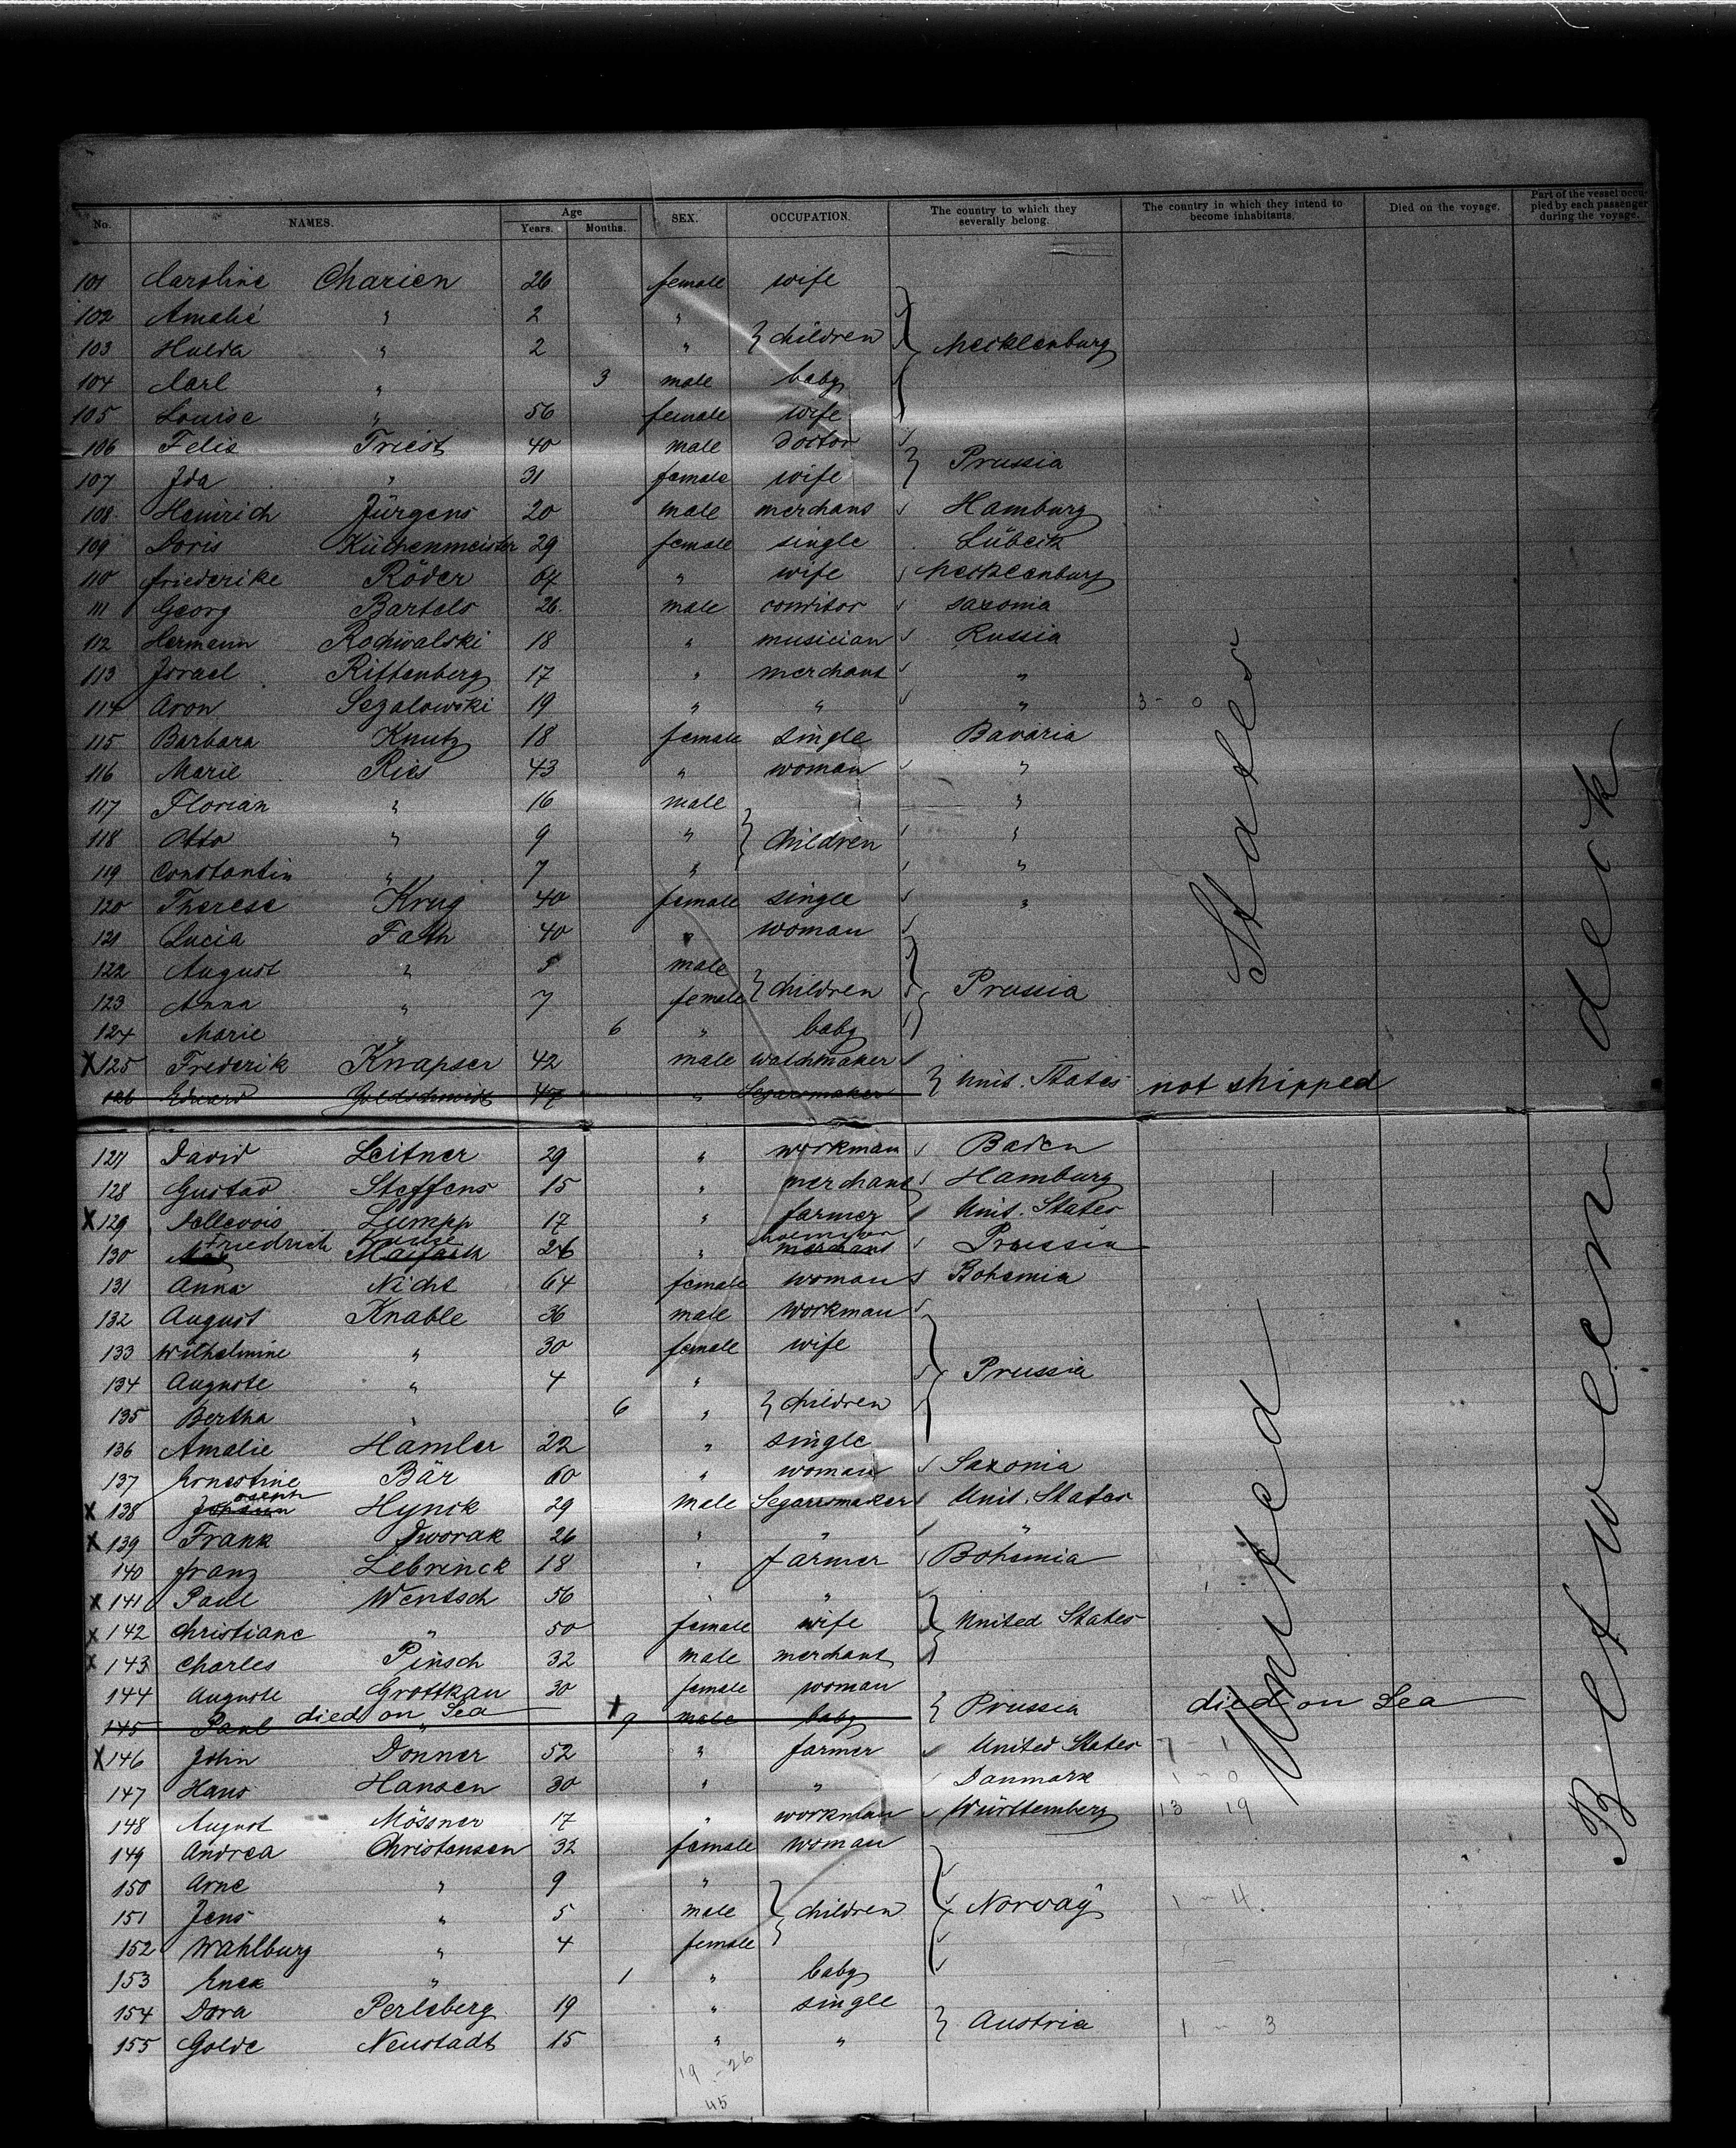 No. NAMES. Age Years. Months. SEX. OCCUPATION. The country to which they severally belong. The country in which they intend to become inhabitants. Died on the voyage. Part of the vessel occupied by each passenger during the voyage.
101 Caroline Charien 26 female wife
102 Amalie " 2 "
103 Hulda " 2 " } children } Mecklenburg
104 Carl " 3 male baby
105 Louise " 56 female wife
106 Felix Triest 40 male Doctor
107 Ida " 31 female wife } Prussia
108 Heinrich Jürgens 20 male merchant Hamburg
109 Doris Küchenmeister 29 female single Lübeck
110 Friederike Röder 64 " wife Mecklenburg
111 Georg Bartels 26 male conditor Saxonia
112 Hermann Rochwalski 18 " musician Russia
113 Israel Rittenberg 17 " merchant "
114 Aron Segalowski 19 " " " 3 - 0
115 Barbara Knutz 18 female single Bavaria
116 Marie Ries 43 " woman "
117 Florian " 16 male "
118 Otto " 9 " } children "
119 Constantin " 7 " "
120 Therese Krug 40 female single "
121 Lucia Fath 40 " woman
122 August " 5 male
123 Anna " 7 female } children } Prussia
124 Marie " 6 " baby
X 125 Frederik Knapser 42 male watchmaker
126 Eduard Goldschmidt 47 " Segarsmaker } Unit. States not shipped
127 David Leitner 29 " workman Baden
128 Gustav Steffens 15 " merchant Hamburg
X 129 Lumpp 17 " farmer Unit. States
130 Friedrich 26 " merchant Prussia
131 Anna Nicht 64 female woman Bohemia
132 August Knable 36 male workman
133 Wilhelmine " 30 female wife
134 Auguste " 4 " } Prussia
135 Bertha " 6 " } children
136 Amalie Hamler 22 " single
137 Ernestine Bär 60 " woman Saxonia
X 138 Joseph Hynck 29 male Segarsmaker Unit. States
X 139 Frank Dworak 26 " " "
140 Franz Lebrinck 18 " farmer Bohemia
X 141 Paul Wentsch 56 " "
X 142 Christiane " 50 female wife } United States
X 143 Charles Pinsch 32 male merchant
144 Auguste Grottkau 30 female woman
145 Paul died on Sea " X 9 male baby } Prussia died on Sea
X 146 John Donner 52 " farmer United States 7 - 1
147 Hans Hansen 30 " " Danmark 1 - 0
148 August Mössner 17 " workman Württemberg 13 19
149 Andrea Christensen 32 female woman
150 Arne " 9 "
151 Jens " 5 male } children } Norway 1 - 4
152 Wahlburg " 4 female
153 " 1 " baby
154 Dora Perleberg 19 " single
155 Golde Neustadt 15 " " } Austria 1 - 3
19 - 26
45
United States
Between deck